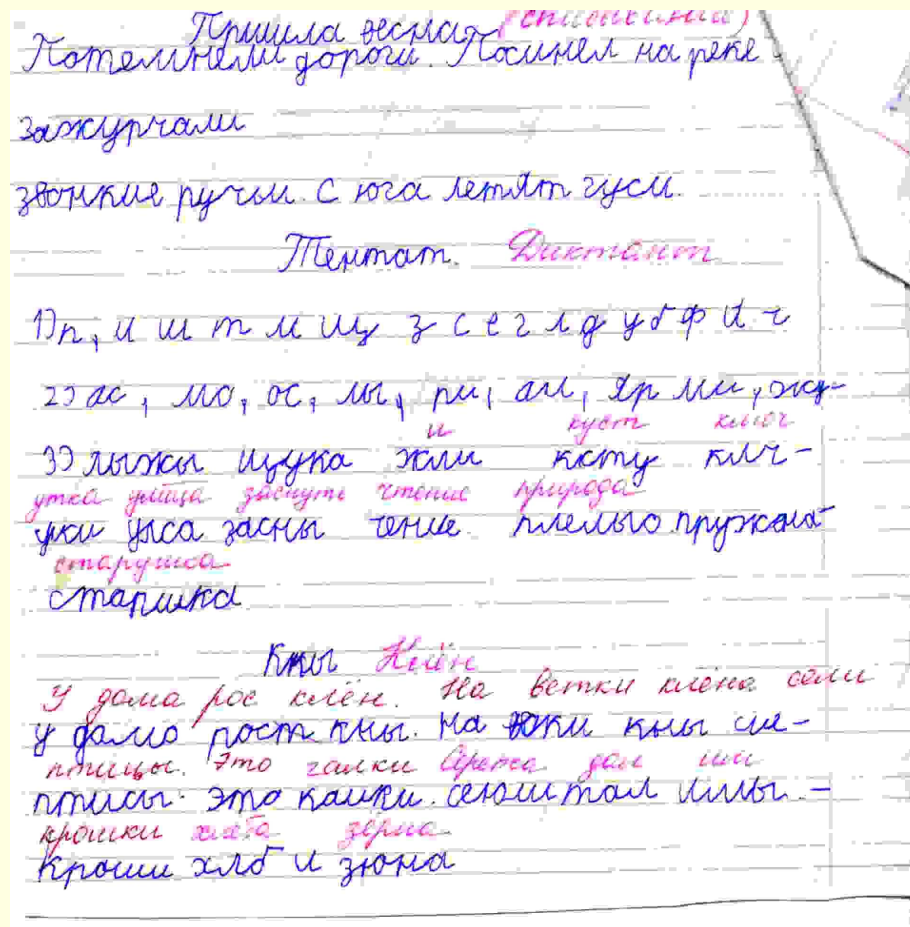 Пришла весна. (списывание)
Потемнели дороги. Посинел на реке
зажурчали
звонкие ручьи. С юга летят гуси.
Тентат. Диктант
1) п, и ш т м щ з с е г л д у б ф й ч
2) ас, мо, ос, лы, ри, ам, яр ми, жу-
и куст ключ
3) лыжы щука жли ксту клч-
утка улица заснуть чтение природа
уки улса засны чение плелыо пружона-
старушка
старшка
Кны Клён
У дома рос клён. На ветки клёна сели
у дамо рост кны. На юки кны си-
птицы. Это галки Сережа дал им
птисы. это камки. сеюш тал имы -
крошки хлеба зёрна
кроши хлб и зюна